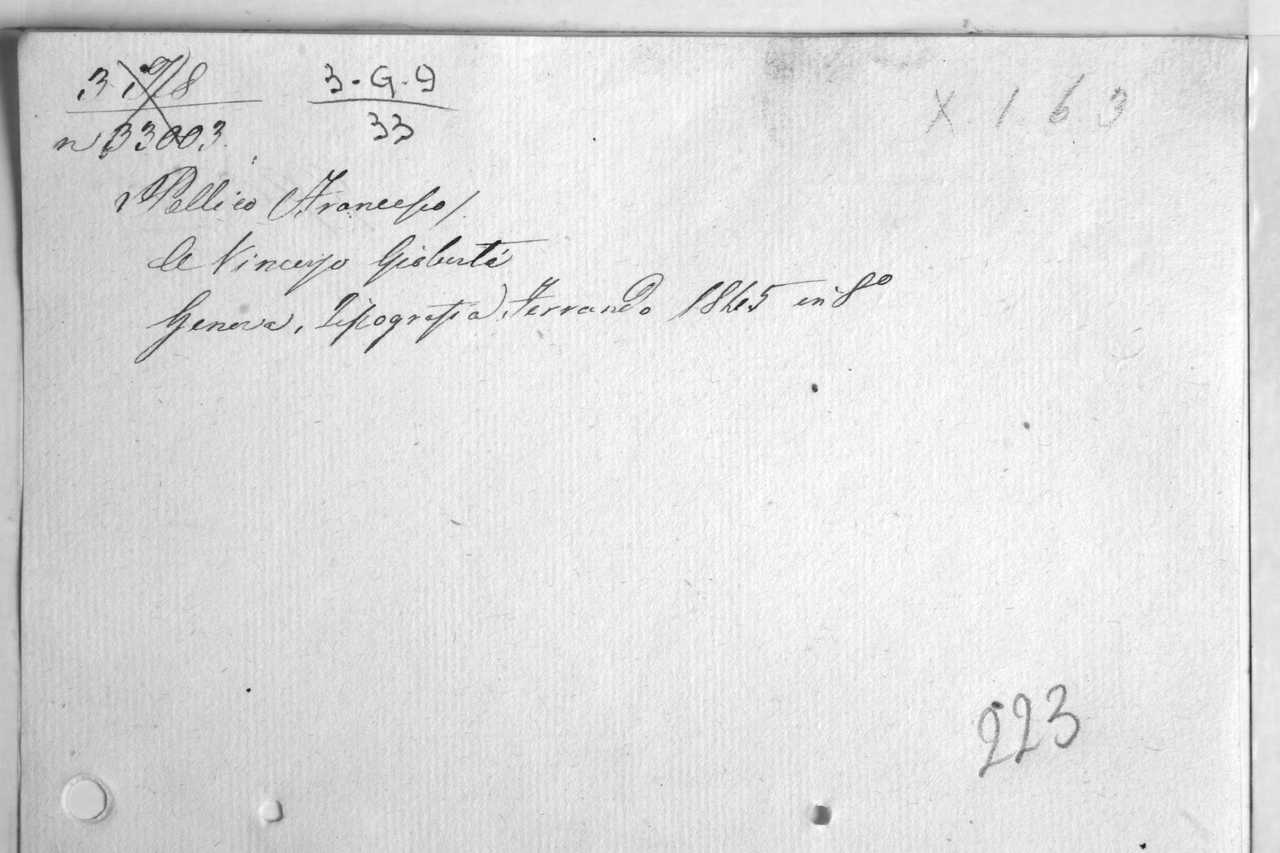 3-G-9
33
X. 1. 6. 3
n 33003.
Pellico (Francesco)
A Vincenzo Gioberti
Genova, Tipografia Ferrando 1845 in 8º
223